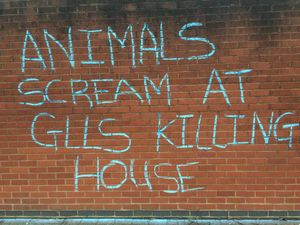 ANIMALS
SCREAM AT
GLLS KILLING
HOUSE